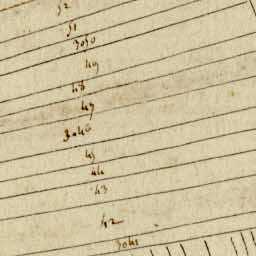 52
51
3050
49
48
47
3046
45
44
43
42
3041